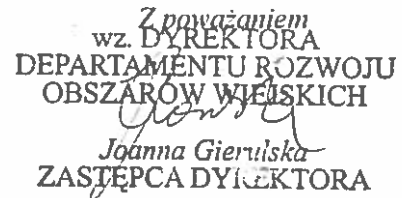 Z poważaniem
wz. DYREKTORA
DEPARTAMENTU ROZWOJU
OBSZARÓW WIEJSKICH
Joanna Gierulska
ZASTĘPCA DYREKTORA